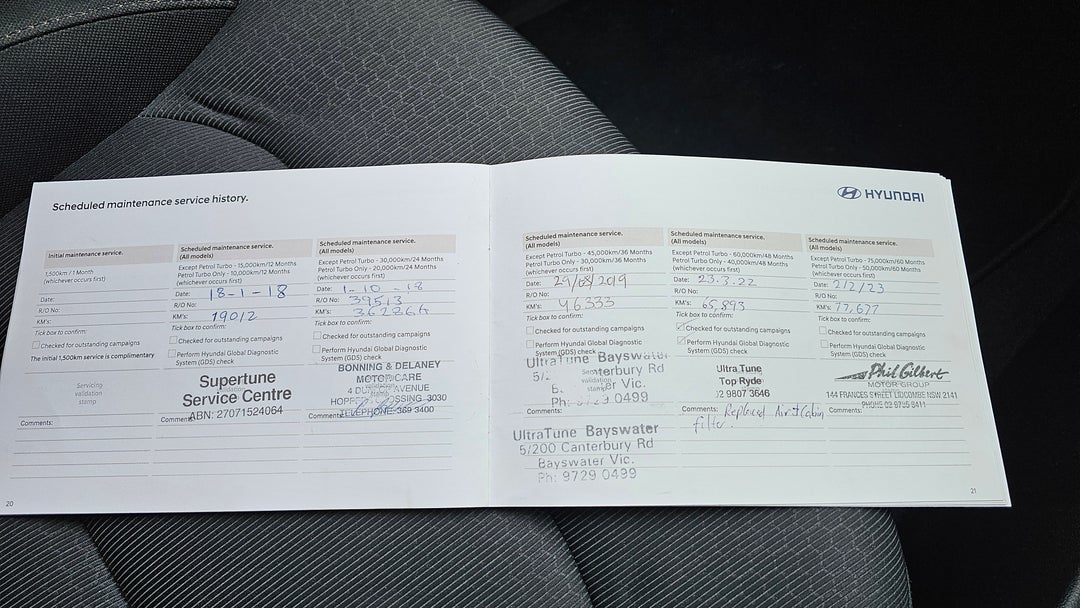 Scheduled maintenance service history.
Initial maintenance service.
1,500km / 1 Month
(whichever occurs first)
Date:
R/O No:
KM's:
Tick box to confirm:
Checked for outstanding campaigns
The initial 1,500km service is complimentary
Servicing
validation
stamp
Comments:
Scheduled maintenance service.
(All models)
Except Petrol Turbo - 15,000km/12 Months
Petrol Turbo Only - 10,000km/12 Months
(whichever occurs first)
Date: 18-1-18
R/O No:
KM's: 19012
Tick box to confirm:
Checked for outstanding campaigns
Perform Hyundai Global Diagnostic
System (GDS) check
Supertune
Service Centre
ABN: 27071524064
Comments:
Scheduled maintenance service.
(All models)
Except Petrol Turbo - 30,000km/24 Months
Petrol Turbo Only - 20,000km/24 Months
(whichever occurs first)
Date: 1-10-18
R/O No: 39513
KM's:
Tick box to confirm:
Checked for outstanding campaigns
Perform Hyundai Global Diagnostic
System (GDS) check
BONNING & DELANEY
MOTOR CARE
AVENUE
3030
TELEPHONE 369 3400
Comments:
20
HYUNDAI
Scheduled maintenance service.
(All models)
Except Petrol Turbo - 45,000km/36 Months
Petrol Turbo Only - 30,000km/36 Months
(whichever occurs first)
Date: 29/08/2019
R/O No:
KM's: 46333
Tick box to confirm:
Checked for outstanding campaigns
Perform Hyundai Global Diagnostic
System (GDS) check
UltraTune Bayswater
5/2 terbury Rd
Vic.
Ph: 0499
Comments:
UltraTune Bayswater
5/200 Canterbury Rd
Bayswater Vic.
Ph: 9729 0499
Scheduled maintenance service.
(All models)
Except Petrol Turbo - 60,000km/48 Months
Petrol Turbo Only - 40,000km/48 Months
(whichever occurs first)
Date: 23.3.22
R/O No:
KM's: 65,893
Tick box to confirm:
Checked for outstanding campaigns
Perform Hyundai Global Diagnostic
System (GDS) check
Ultra Tune
Top Ryde
02 9807 3646
Comments: Replaced Air + Cabin
filter.
Scheduled maintenance service.
(All models)
Except Petrol Turbo - 75,000km/60 Months
Petrol Turbo Only - 50,000km/60 Months
(whichever occurs first)
Date: 2/2/23
R/O No:
KM's: 77,677
Tick box to confirm:
Checked for outstanding campaigns
Perform Hyundai Global Diagnostic
System (GDS) check
Phil Gilbert
MOTOR GROUP
144 FRANCES STREET LIDCOMBE NSW 2141
PHONE 02 9735 9411
Comments:
21